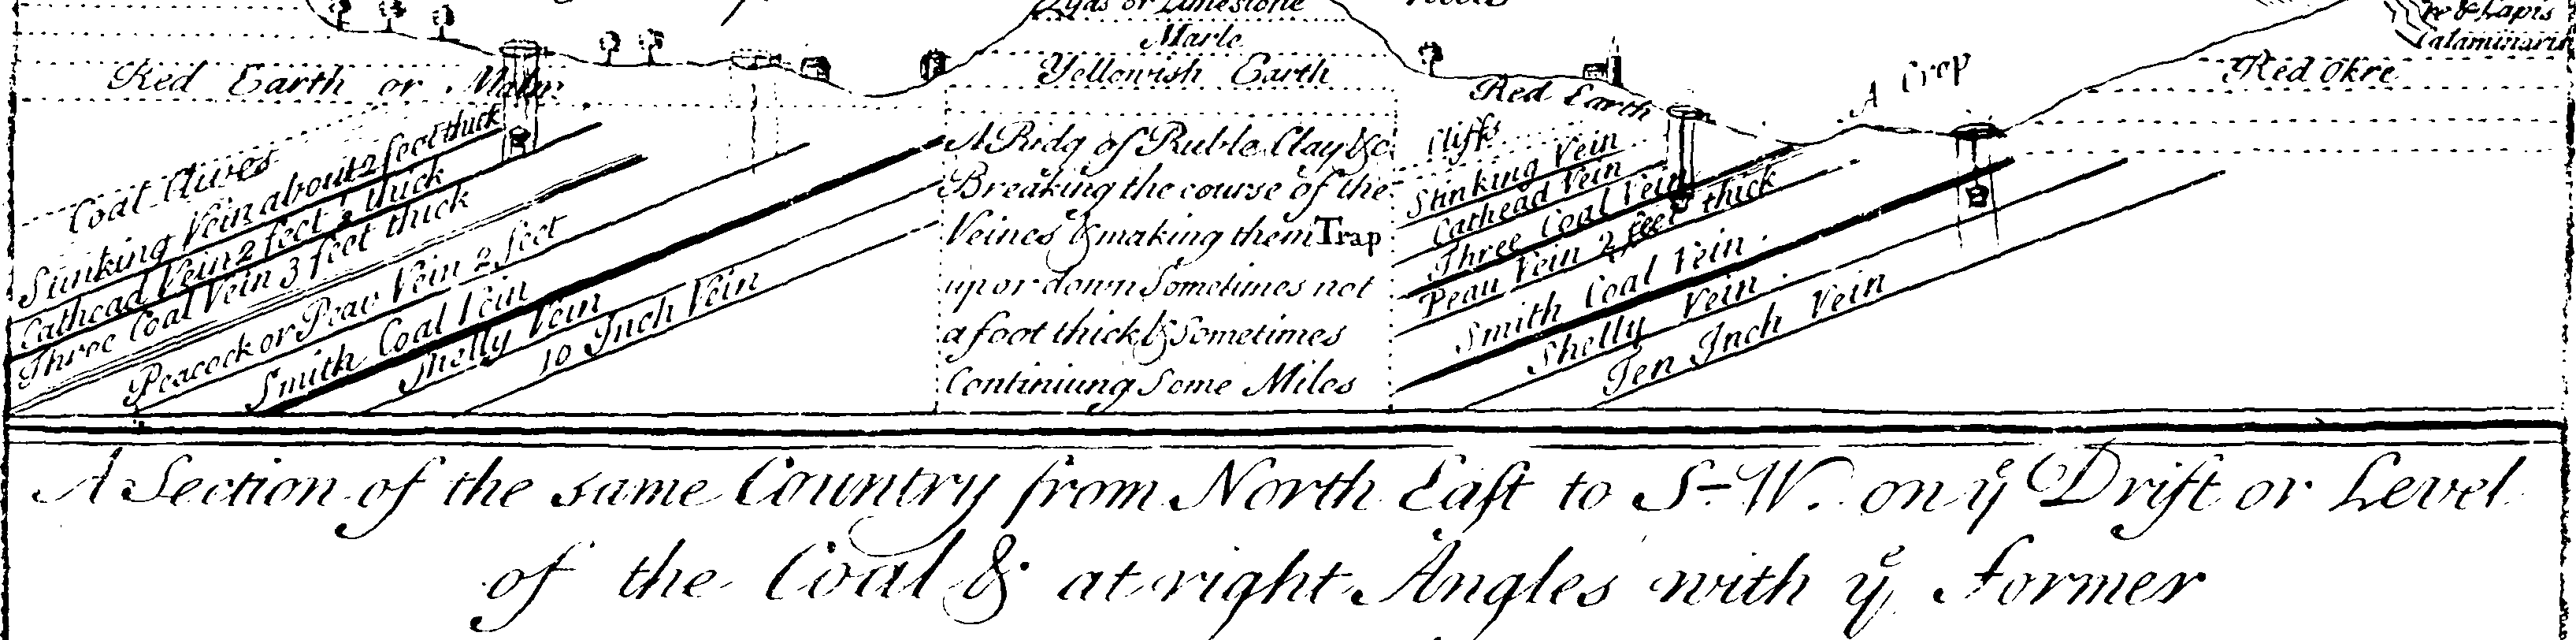 Lyas or Limestone
Marle
Yellowish Earth
re & Lapis
Calaminaris
Red Okre
Red Earth or Malm
Red Earth
A Crop
Coal Clives
Stinking Vein about 2 feet thick
Cathead Vein 2 feet ½ thick
Three Coal Vein 3 feet thick
Peacock or Peav Vein 2 feet
Smith Coal Vein
Shelly Vein
10 Inch Vein
A Ridg of Ruble Clay &c
Breaking the course of the
Veines & making them Trap
up or down Sometimes not
a foot thick & Sometimes
Continiung Some Miles
Clifts
Stinking Vein
Cathead Vein
Three Coal Vein
Peau Vein 2 feet thick
Smith Coal Vein.
Shelly Vein.
Ten Inch Vein
A Section of the same Country from North East to S-W. on yͤ Drift or Level
of the Coal & at right Angles with yͤ Former